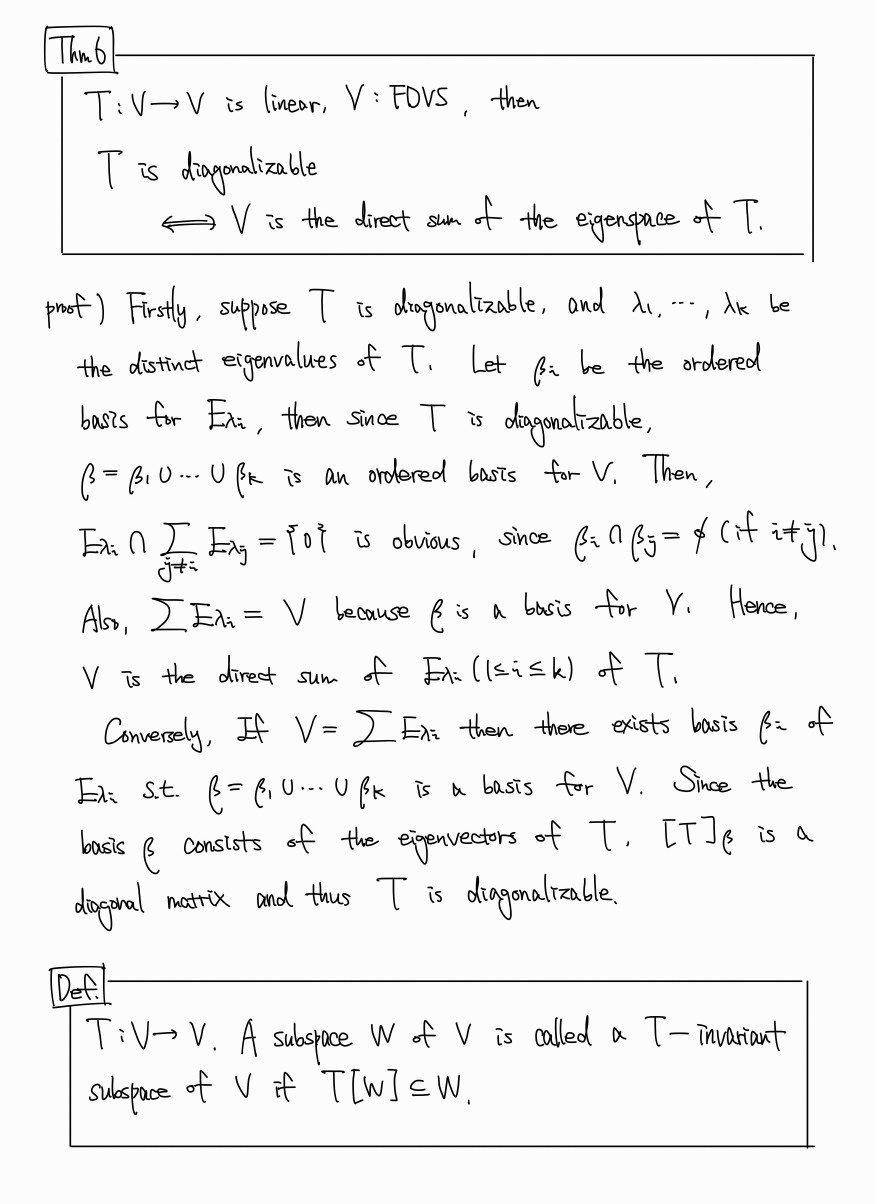 Thm 6
T : V → V is linear, V : FDVS, then
T is diagonalizable
⟺ V is the direct sum of the eigenspace of T.
proof) Firstly, suppose T is diagonalizable, and λ₁, ⋯, λₖ be
the distinct eigenvalues of T. Let βᵢ be the ordered
basis for E_λᵢ, then since T is diagonalizable,
β = β₁ ∪ ⋯ ∪ βₖ is an ordered basis for V. Then,
E_λᵢ ∩ ∑_{j≠i} E_λⱼ = {0} is obvious, since βᵢ ∩ βⱼ = ϕ (if i≠j).
Also, ∑E_λᵢ = V because β is a basis for V. Hence,
V is the direct sum of E_λᵢ (1≤i≤k) of T.
Conversely, If V = ∑E_λᵢ then there exists basis βᵢ of
E_λᵢ s.t. β = β₁ ∪ ⋯ ∪ βₖ is a basis for V. Since the
basis β consists of the eigenvectors of T, [T]_β is a
diagonal matrix and thus T is diagonalizable.
Def.
T : V → V. A subspace W of V is called a T-invariant
subspace of V if T[W] ⊆ W.